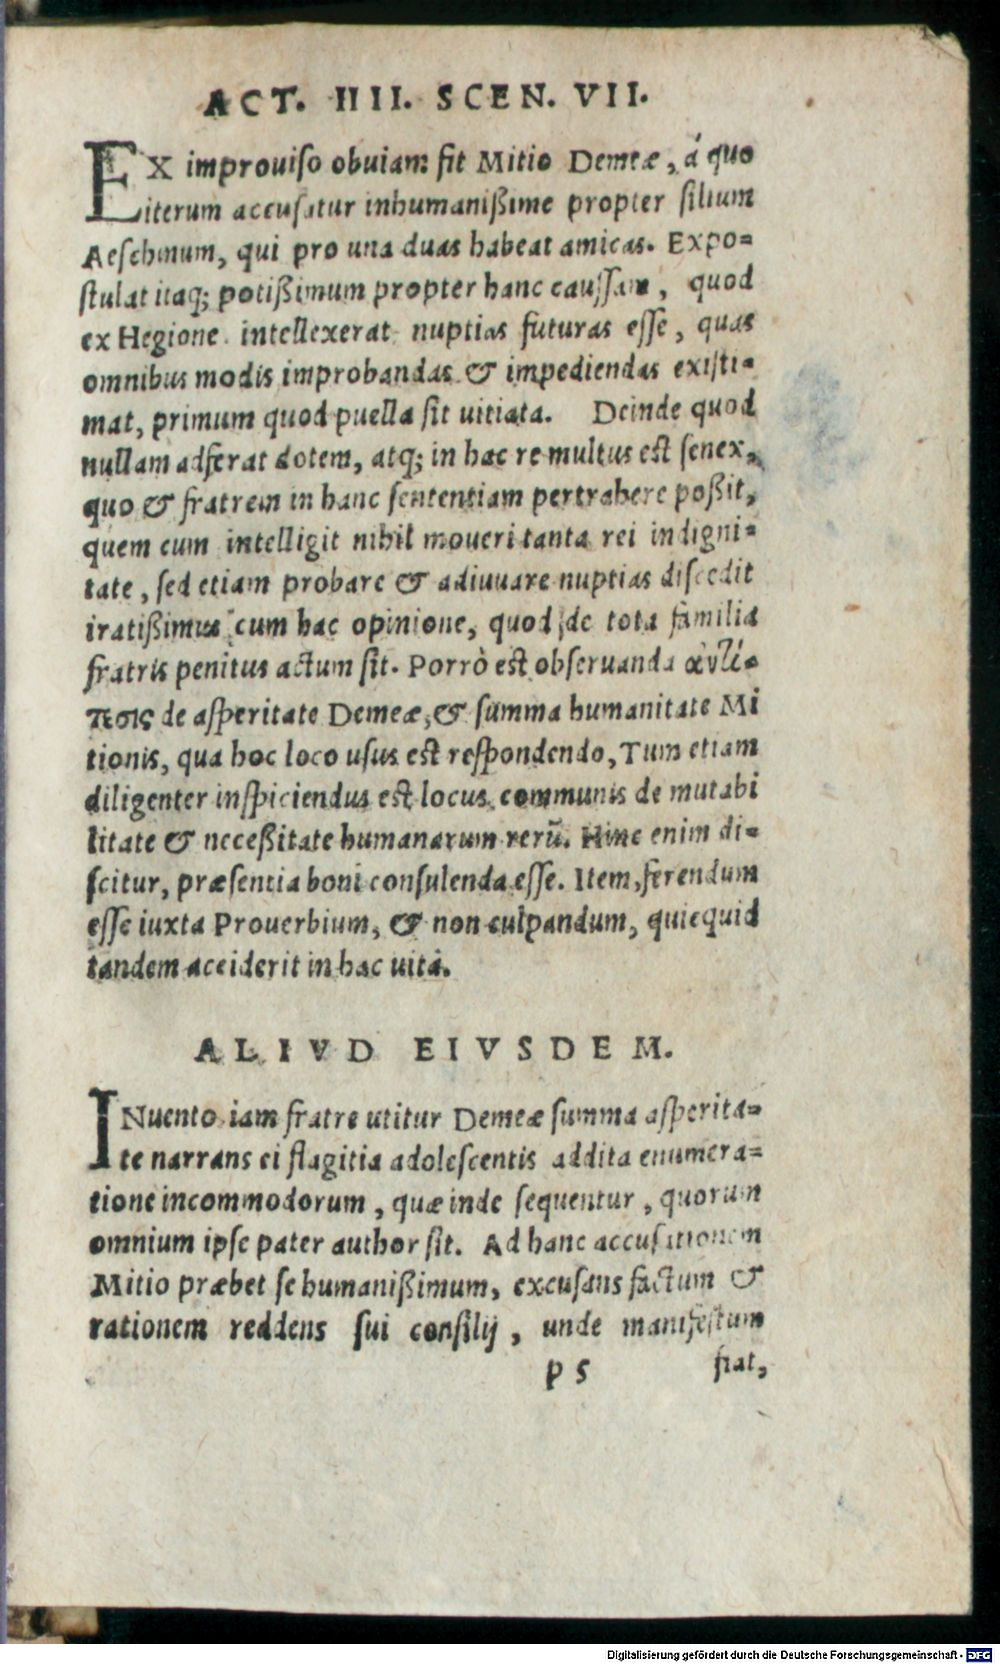 ACT. IIII. SCEN. VII.
EX improuiso obuiam fit Mitio Demeæ, á quo
iterum accusatur inhumanißime propter filium
Aeschinum, qui pro una duas habeat amicas. Expo=
stulat itaq; potißimum propter hanc caussam, quod
ex Hegione intellexerat nuptias futuras esse, quas
omnibus modis improbandas & impediendas existi=
mat, primum quod puella sit uitiata. Deinde quod
nullam adferat dotem, atq; in hac re multus est senex,
quo & fratrem in hanc sententiam pertrahere poßit,
quem cum intelligit nihil moueri tanta rei indigni=
tate, sed etiam probare & adiuuare nuptias discedit
iratißimus cum hac opinione, quod de tota familia
fratris penitus actum sit. Porrò est obseruanda ἀντί=
πεσις de asperitate Demeæ, & summa humanitate Mi
tionis, qua hoc loco usus est respondendo, Tum etiam
diligenter inspiciendus est locus communis de mutabi
litate & neceßitate humanarum rerū. Hinc enim di=
scitur, præsentia boni consulenda esse. Item, ferendum
esse iuxta Prouerbium, & non culpandum, quicquid
tandem acciderit in hac uita.
ALIVD EIVSDEM.
INuento iam fratre utitur Demeæ summa asperita=
te narrans ei flagitia adolescentis addita enumera=
tione incommodorum, quæ inde sequentur, quorum
omnium ipse pater author sit. Ad hanc accusationem
Mitio præbet se humanißimum, excusans factum &
rationem reddens sui consilij, unde manifestum
p 5 fiat,
Digitalisierung gefördert durch die Deutsche Forschungsgemeinschaft - DFG